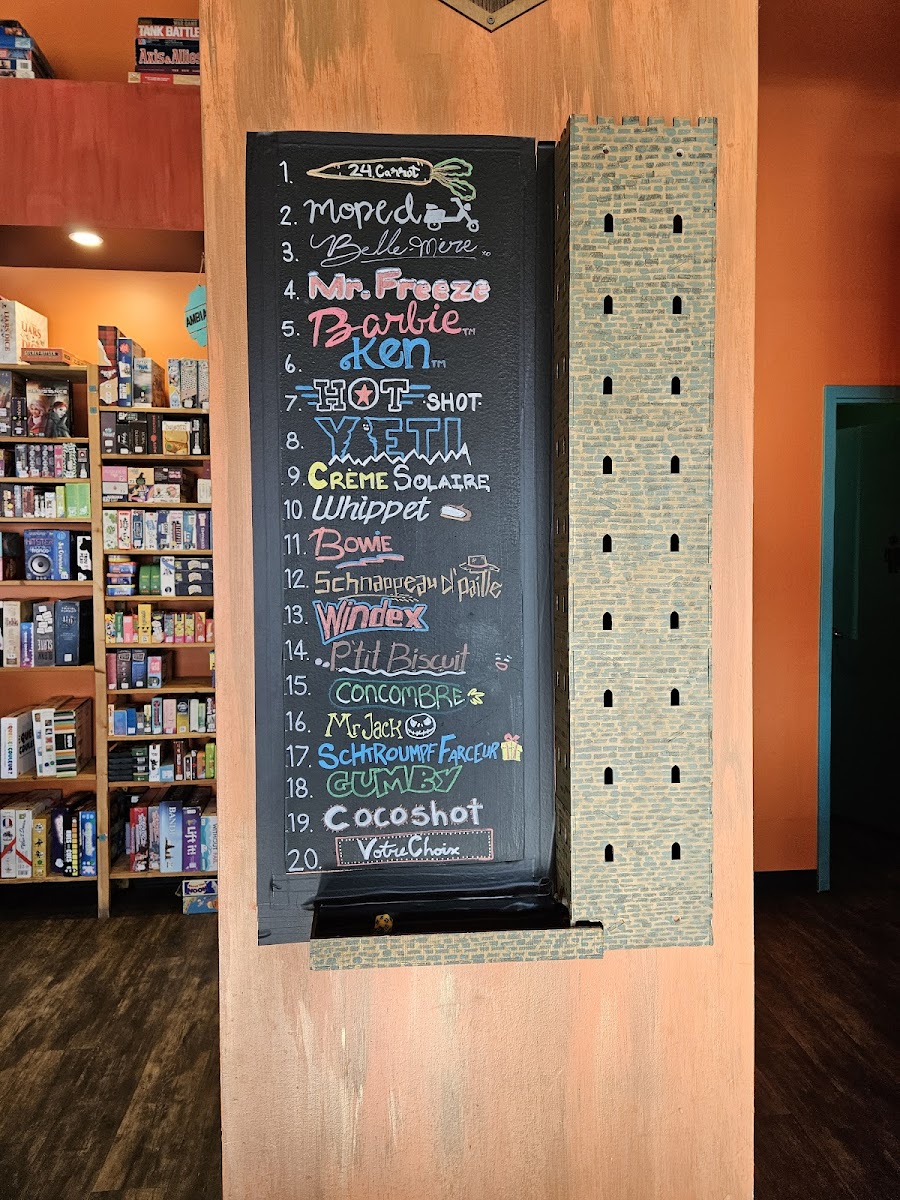 TANK BATTLE
Axis & Allies
1. 24 Carrot
2. moped
3. Belle-Mère xo
4. Mr. Freeze
5. Barbie TM
6. Ken TM
7. HOT SHOT
8. YETI
9. CRÈME SOLAIRE
10. Whippet
11. BOWIE
12. Schnappeau d'paille
13. Windex
14. P'tit Biscuit
15. CONCOMBRE
16. Mr Jack
17. SCHTROUMPF FARCEUR
18. GUMBY
19. Cocoshot
20. Votre Choix